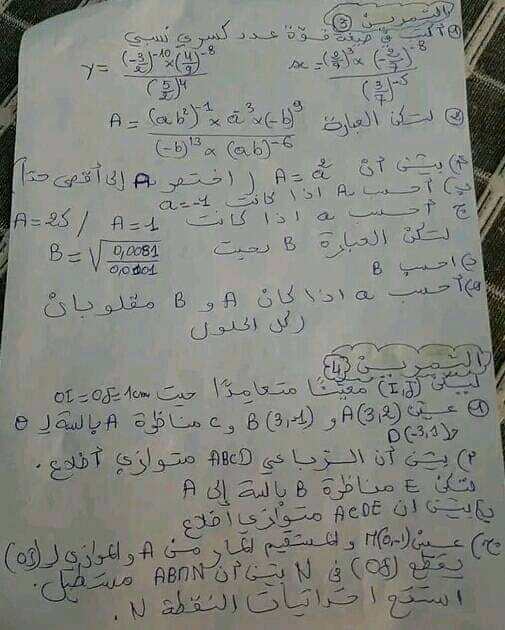 التمرين 3
1) أكتب في صيغة قوة عدد كسري نسبي
y = ((-3/2)^-10 × (4/9)^-8) / (5/2)^4    x = ((2/7)^3 × (-2/7)^-8) / (3/7)^-5
2) لتكن العبارة A = ((ab²)^-1 × a^3 × (-b)^9) / ((-b)^13 × (ab)^-6)
أ) بيّن أن A = a² (اختصر A إلى أقصى حد)
ب) أحسب A اذا كانت a = -1
ج) أحسب a اذا كانت A = 1 / A = 25
لتكن العبارة B بحيث B = √(0,0081 / 0,0001)
احسب B
أحسب a اذا كان A و B مقلوبان
(كل الحلول)
التمرين 4
ليكن (O,I,J) معيّنًا متعامدًا حيث OI = OJ = 1cm
1) عيّن A(3,2) و B(3,-1) و C مناظرة A بالنسبة لـ O
و D(-3,1)
أ) بيّن أن الرباعي ABCD متوازي أضلاع.
لتكن E مناظرة B بالنسبة إلى A
ب) بيّن ان ACDE متوازي أضلاع
ج) عيّن M(0,-1) والمستقيم المار من A والموازي لـ (OI)
يقطع (OJ) في N بيّن أن ABMN مستطيل.
استنتج احداثيات النقطة N.